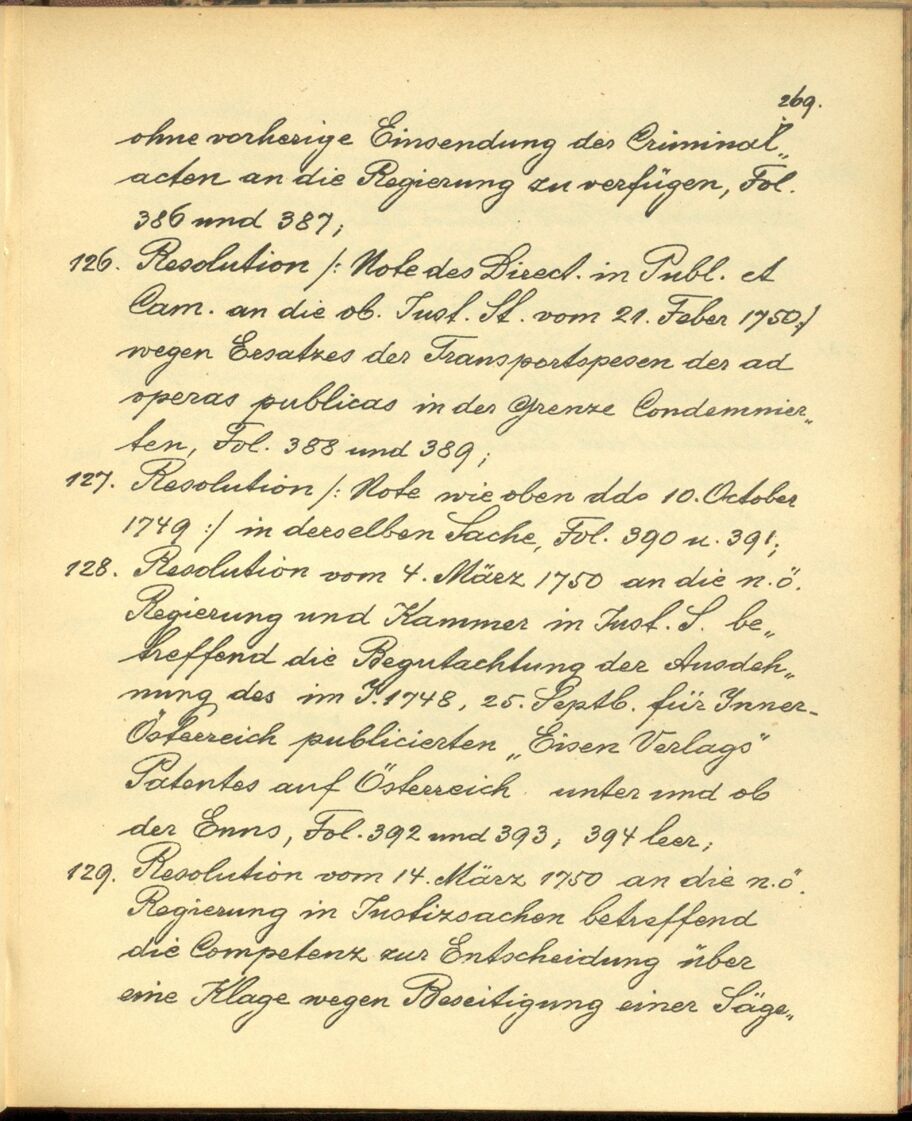 269.
ohne vorherige Einsendung der Criminal„
acten an die Regierung zu verfügen, Fol.
386 und 387;
126. Resolution /: Note des Direct. in Publ. et
Cam. an die ob. Just. St. vom 21. Feber 1750:/
wegen Ersatzes der Transportspesen der ad
operas publicas in der Grenze Condemnier„
ten, Fol. 388 und 389;
127. Resolution /: Note wie oben ddo 10. October
1749 :/ in derselben Sache, Fol. 390 u. 391;
128. Resolution vom 4. März 1750 an die n.ö.
Regierung und Kammer in Just. S. be„
treffend die Begutachtung der Ausdeh„
nung des im J. 1748, 25. Septb. für Inner-
Österreich publicierten „Eisen Verlags"
Patentes auf Österreich unter und ob
der Enns, Fol. 392 und 393, 394 leer;
129. Resolution vom 14. März 1750 an die n.ö.
Regierung in Justizsachen betreffend
die Competenz zur Entscheidung über
eine Klage wegen Beseitigung einer Säge„